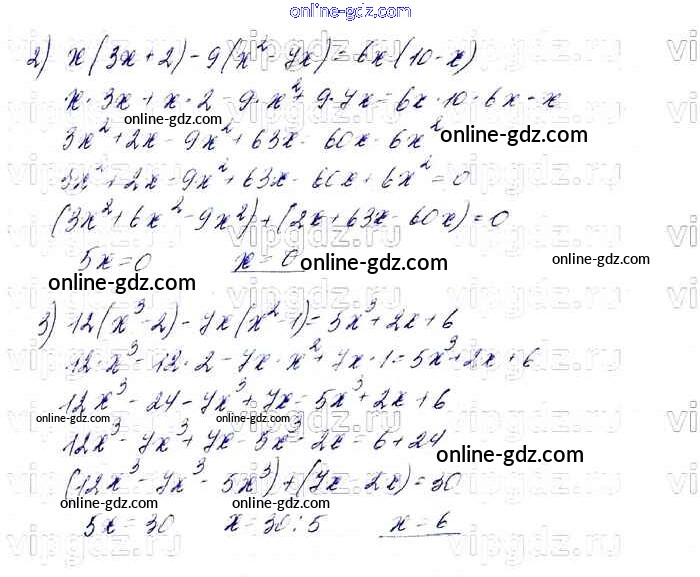 online-gdz.com
2) x(3x+2)-9(x²-7x)=6x(10-x)
x·3x+x·2-9·x²+9·7x=6x·10-6x·x
3x²+2x-9x²+63x=60x-6x²
online-gdz.com
3x²+2x-9x²+63x-60x+6x²=0
(3x²+6x²-9x²)+(2x+63x-60x)=0
5x=0 x=0
online-gdz.com
online-gdz.com
3) 12(x³-2)-7x(x²-1)=5x³+2x+6
12·x³-12·2-7x·x²+7x·1=5x³+2x+6
12x³-24-7x³+7x=5x³+2x+6
online-gdz.com
online-gdz.com
12x³-7x³+7x-5x³-2x=6+24
online-gdz.com
(12x³-7x³-5x³)+(7x-2x)=30
online-gdz.com
online-gdz.com
5x=30 x=30:5 x=6